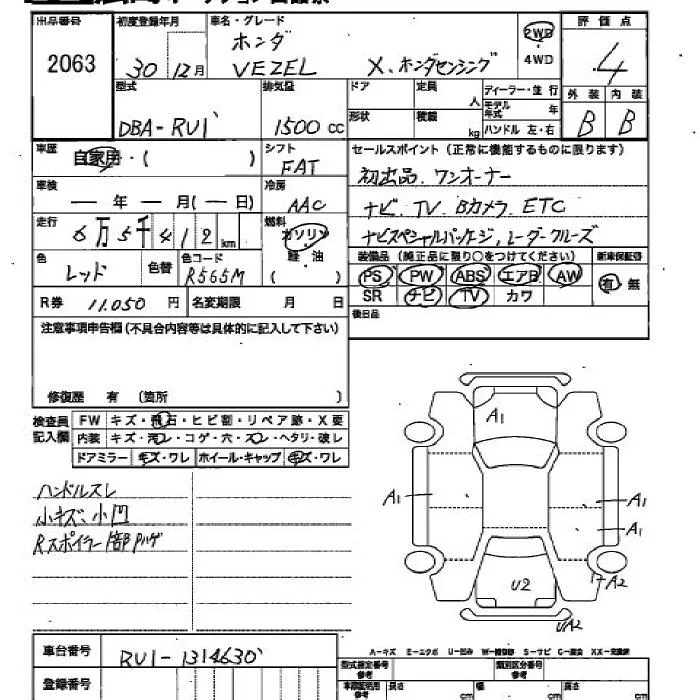 出品番号 初度登録年月 車名・グレード 評価点
2063 30 12月 ホンダ 2WD 4
VEZEL X、ホンダセンシング 4WD
型式 排気量 ドア 定員 人 ディーラー・並行 外装 内装
DBA-RU1 1500 cc 形状 積載 kg モデル年式 年 B B
ハンドル 左・右
車歴 自家用・( ) シフト セールスポイント (正常に機能するものに限ります)
FAT 初出品、ワンオーナー
車検 ― 年 ― 月(― 日) 冷房
AAC ナビ、TV、Bカメラ、ETC
走行 6万5千412km 燃料 ガソリン ナビスペシャルパッケージ、レーダークルーズ
軽油
( )
色 レッド 色替 色コード R565M 装備品 (純正品に限り○をつけてください) 新車保証書
PS PW ABS エアB AW 有 無
SR ナビ TV カワ
R券 11.050 円 名変期限 月 日 後日品
注意事項申告欄(不具合内容等は具体的に記入して下さい)
修復歴 有 (箇所 )
検査員記入欄 FW キズ・飛石・ヒビ割・リペア跡・X要
内装 キズ・汚レ・コゲ・穴・スレ・ヘタリ・破レ
ドアミラー キズ・ワレ ホイール・キャップ キズ・ワレ
A1
ハンドルスレ
小キズ、小凹
Rスポイラー1部Pハゲ
A1 A1
A1
U2 A2
UA2
A-キズ E-エクボ U-凹み W-補修跡 S-サビ C-腐食 XX-交換済
車台番号 RU1-1314630
登録番号
型式指定番号 参考 類別区分番号 参考
長さ cm 幅 cm 高さ cm